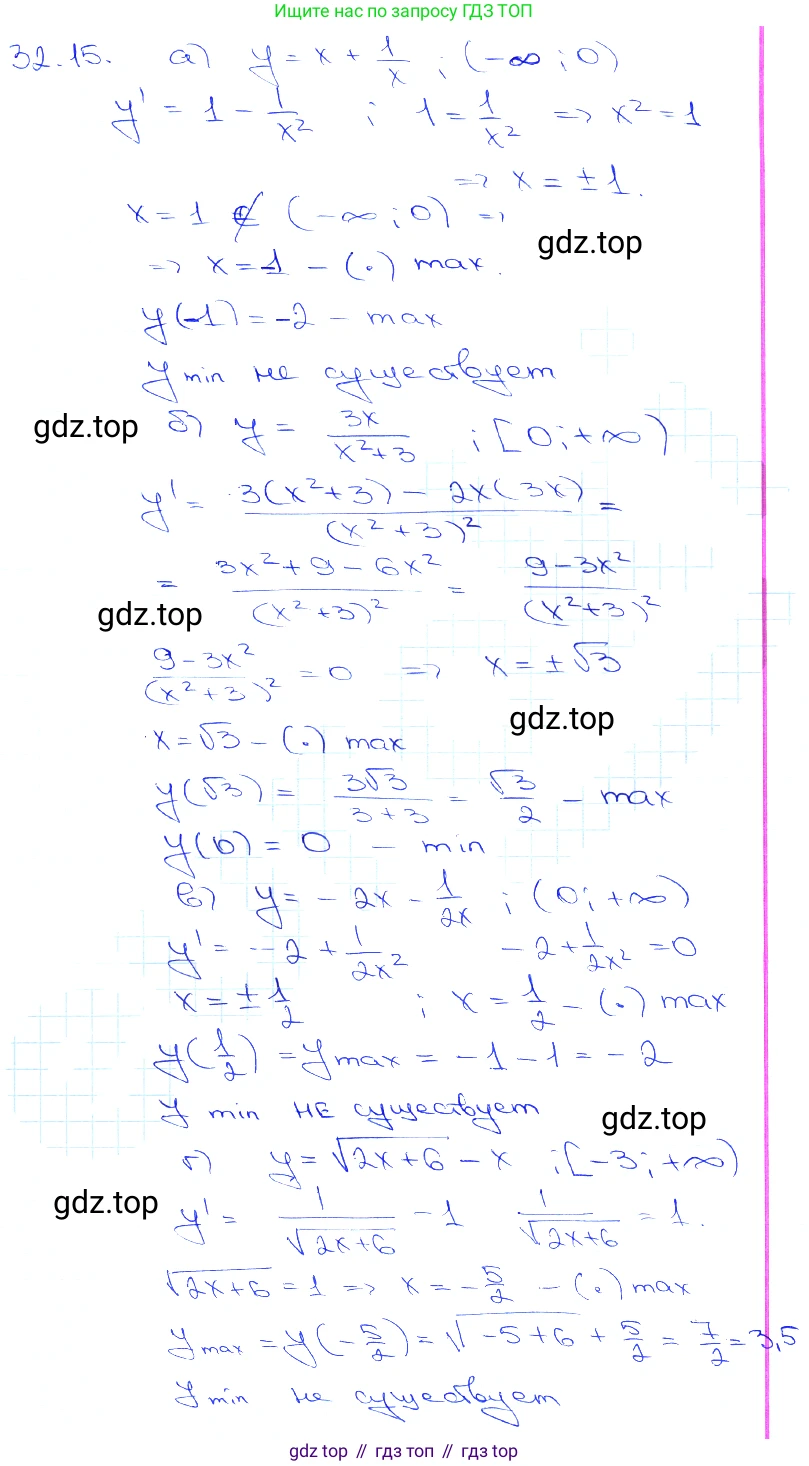 Ищите нас по запросу ГДЗ ТОП
32.15. а) y = x + 1/x ; (-∞ ; 0)
y' = 1 - 1/x² ; 1 = 1/x² => x² = 1
=> x = ±1.
x = 1 ∉ (-∞ ; 0) =>
gdz.top
=> x = -1 - (•) max.
y(-1) = -2 - max
y min не существует
gdz.top
б) y = 3x/(x²+3) ; [0; +∞)
y' = (3(x²+3) - 2x(3x))/(x²+3)² =
= (3x²+9-6x²)/(x²+3)² = (9-3x²)/(x²+3)²
gdz.top
(9-3x²)/(x²+3)² = 0 => x = ±√3
gdz.top
x = √3 - (•) max
y(√3) = 3√3/(3+3) = √3/2 - max
y(0) = 0 - min
в) y = -2x - 1/2x ; (0; +∞)
y' = -2 + 1/2x² -2 + 1/2x² = 0
x = ±1/2 ; x = 1/2 - (•) max
y(1/2) = y max = -1 - 1 = -2
y min НЕ существует
gdz.top
г) y = √(2x+6) - x ; [-3; +∞)
gdz.top
y' = 1/√(2x+6) - 1 1/√(2x+6) = 1.
√(2x+6) = 1 => x = -5/2 - (•) max
y max = y(-5/2) = √(-5+6) + 5/2 = 7/2 = 3,5
y min не существует
gdz top // гдз топ // gdz top